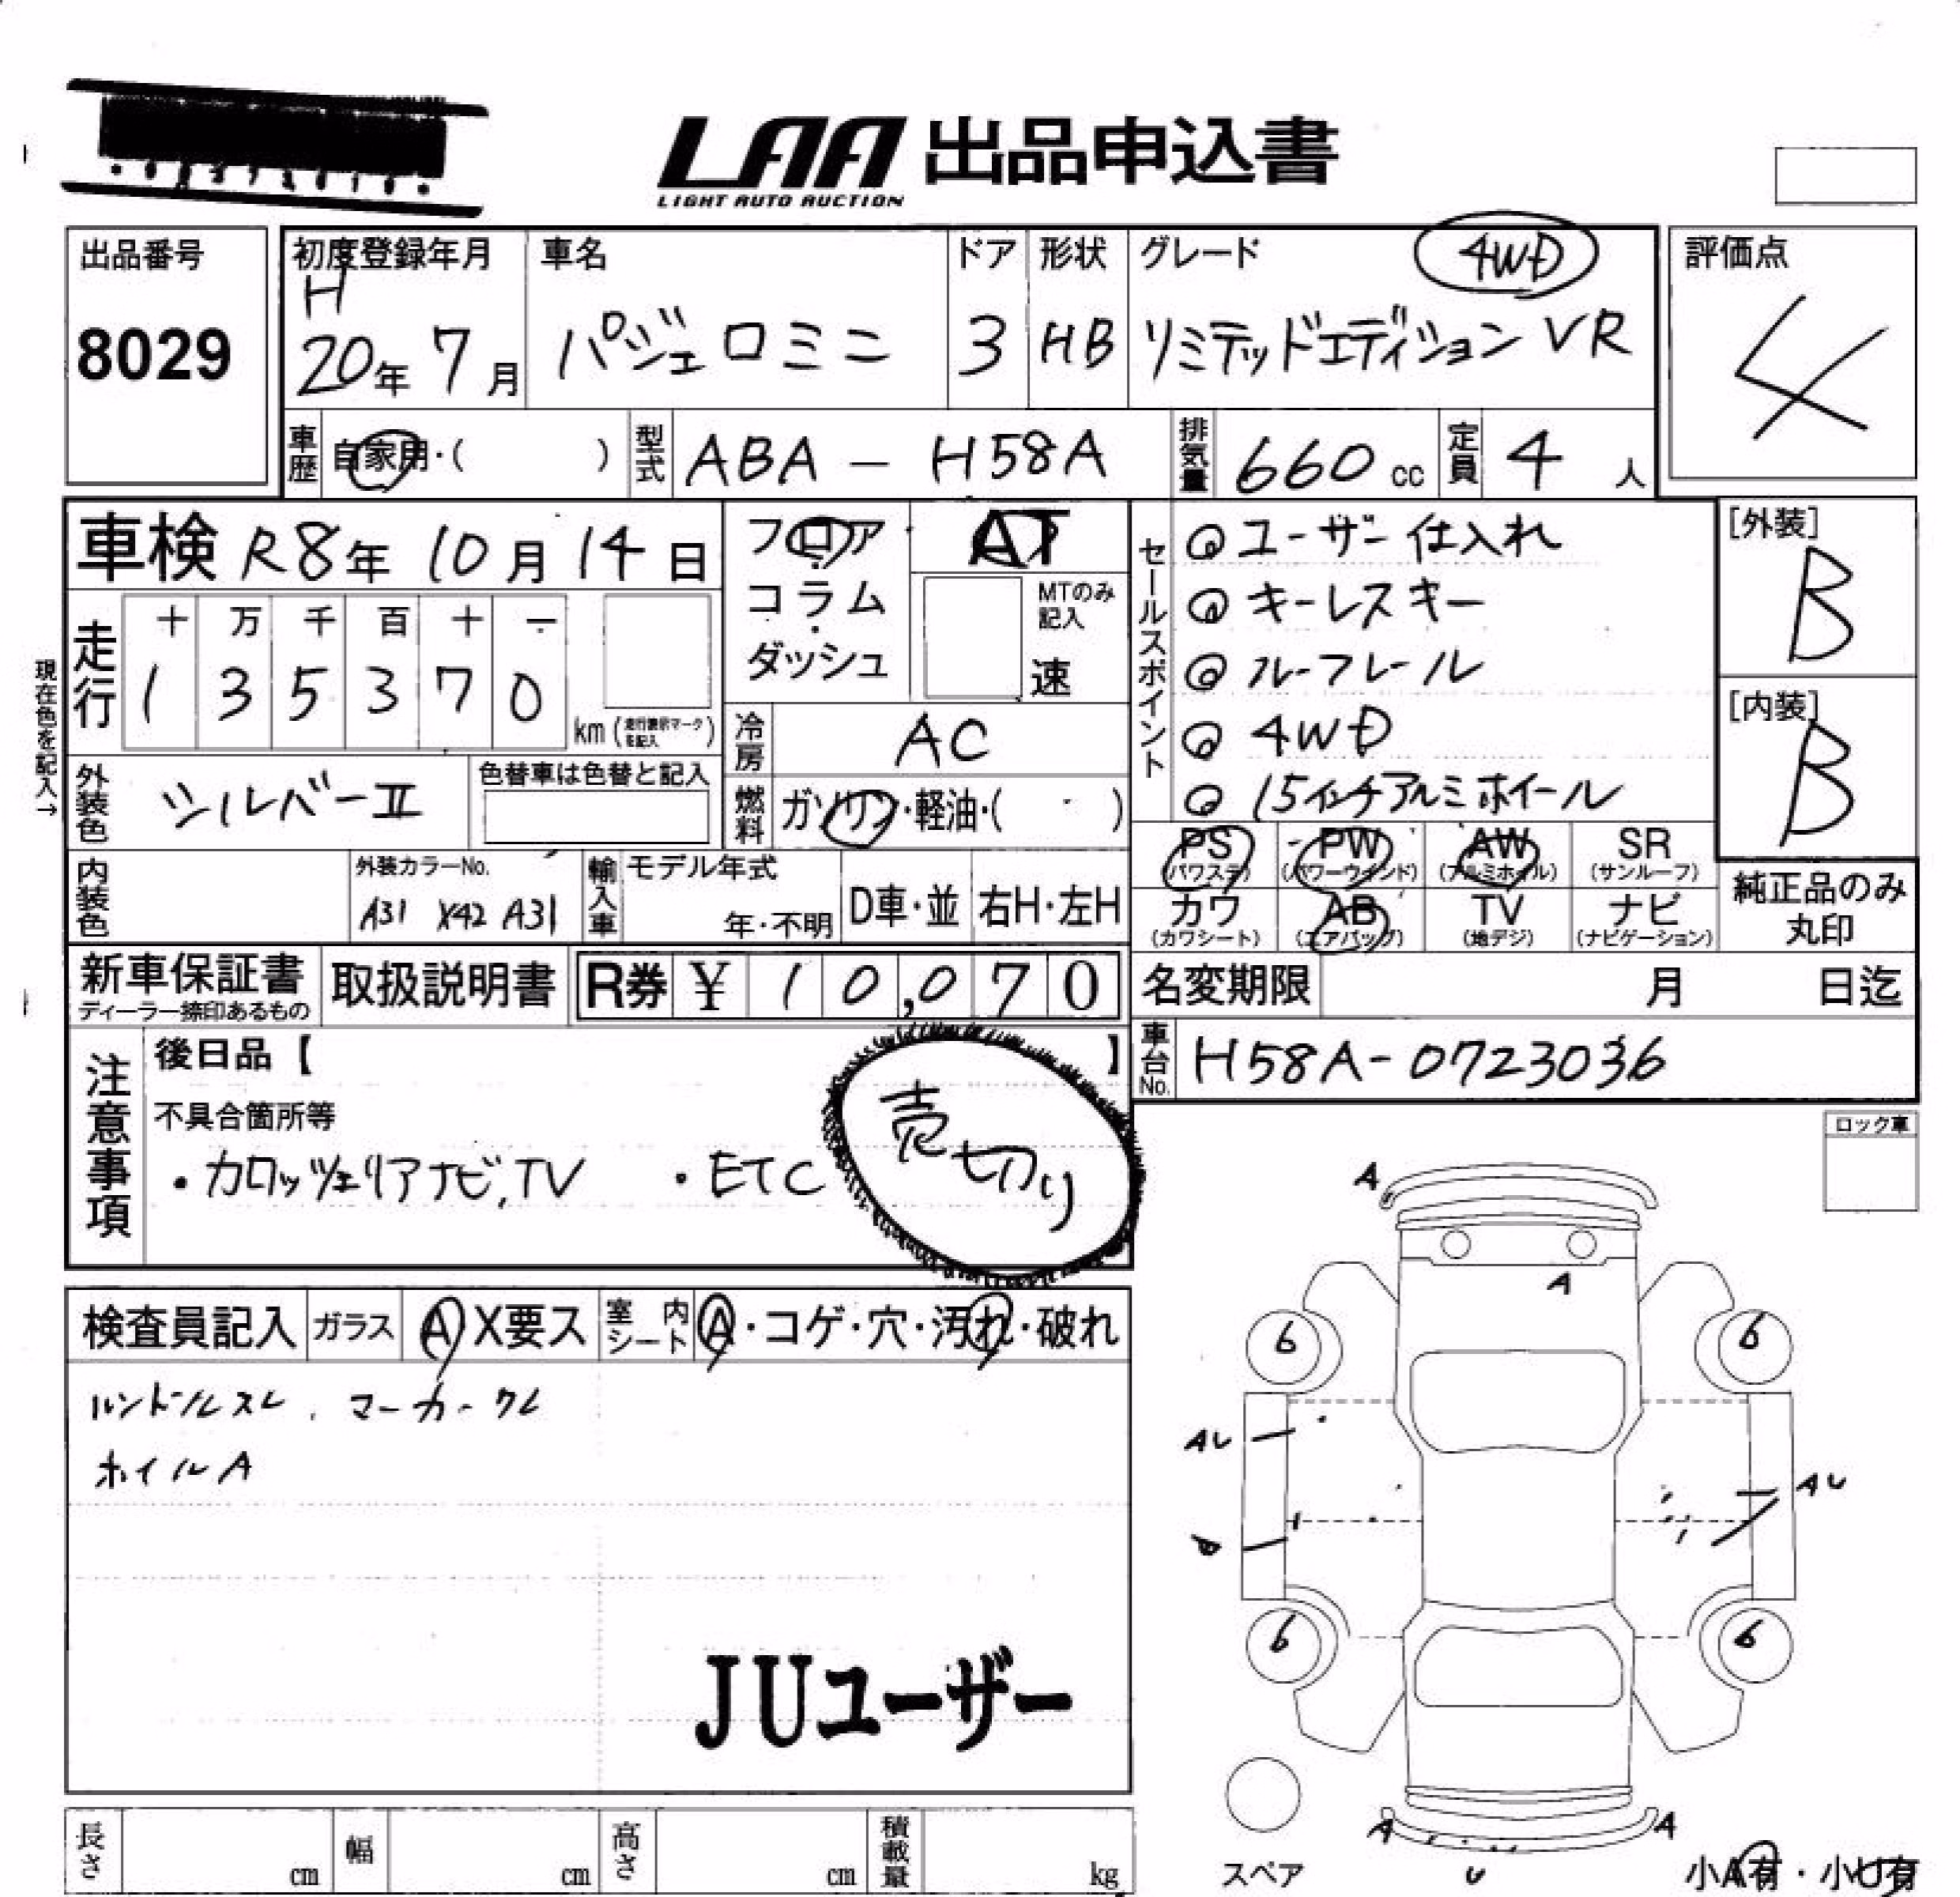 LAA 出品申込書
LIGHT AUTO AUCTION
出品番号
8029
初度登録年月
H
20年 7月
車名
パジェロミニ
ドア
3
形状
HB
グレード 4WD
リミテッドエディション VR
評価点
4
車歴 自家用・( )
型式 ABA - H58A
排気量 660 cc
定員 4 人
車検 R8年 10月 14日
フロア
コラム
ダッシュ
AT
MTのみ記入
速
セールスポイント
◎ユーザー仕入れ
◎キーレスキー
◎ルーフレール
◎4WD
◎15インチアルミホイール
[外装]
B
[内装]
B
現在色を記入→
走行
十 万 千 百 十 一
1 3 5 3 7 0
km (走行表示マークを記入)
冷房 AC
外装色 シルバーII
色替車は色替と記入
燃料 ガソリン・軽油・( )
PS (パワステ)
PW (パワーウインド)
AW (アルミホイル)
SR (サンルーフ)
カワ (カワシート)
AB (エアバッグ)
TV (地デジ)
ナビ (ナビゲーション)
純正品のみ
丸印
内装色
外装カラーNo.
A31 X42 A31
輸入車
モデル年式
年・不明
D車・並
右H・左H
新車保証書
ディーラー捺印あるもの
取扱説明書
R券 ¥ 10,070
名変期限 月 日迄
車台No. H58A-0723036
注意事項
後日品【 】
不具合箇所等
・カロッツェリアナビ,TV ・ETC
売切り
ロック車
検査員記入 ガラス A X要ス 室内シート A・コゲ・穴・汚れ・破れ
ハンドルスレ、マーカークレ
ホイルA
JUユーザー
A
A
6
6
AU
AU
6
6
A
A
U
スペア
小A有・小U有
長さ cm
幅 cm
高さ cm
積載量 kg